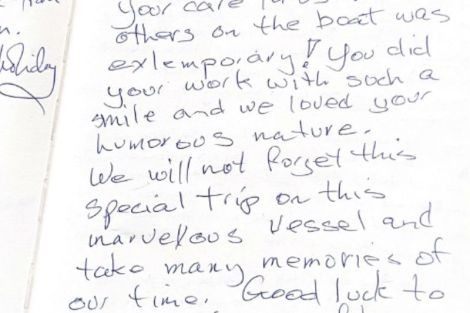 your care
others on the boat was
exlemporary! You did
your work with such a
smile and we loved your
humorous nature.
We will not forget this
special trip on this
marvellous vessel and
take many memories of
our time. Good luck to